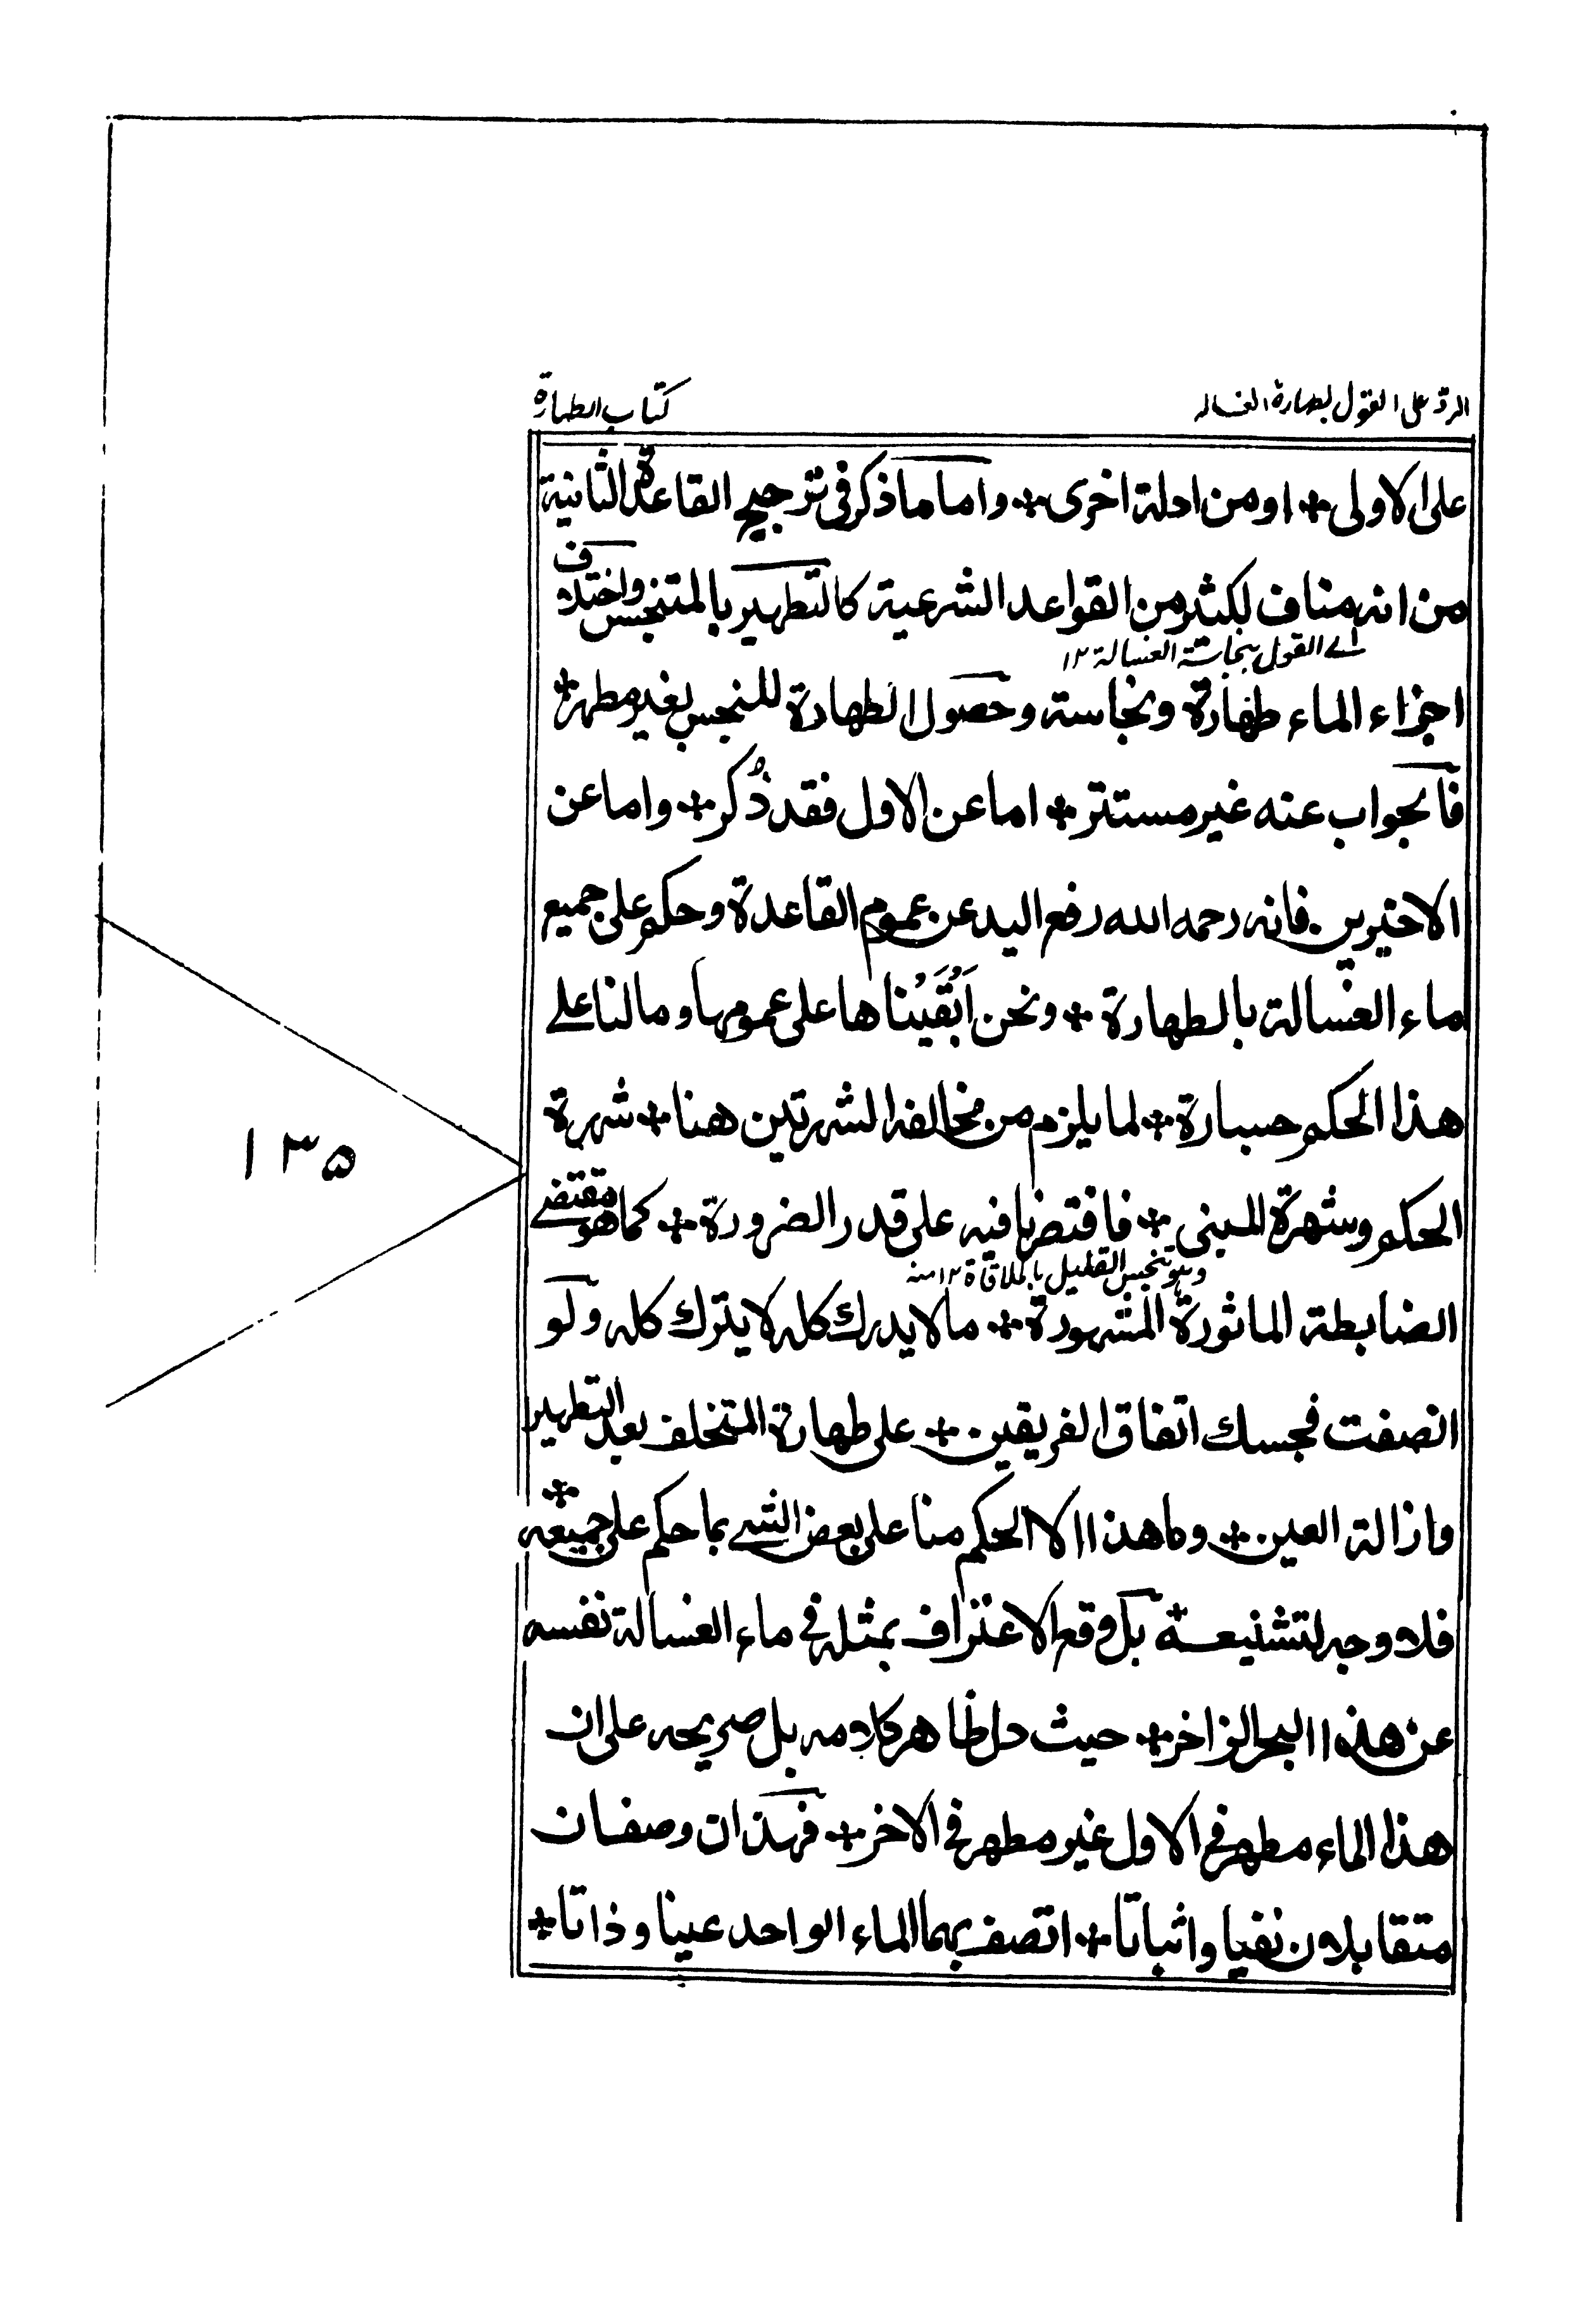 الرد على القول بطهارة الغساله
كتاب الطهارة
على الاولى ÷ او من ادلة اخرى ÷ واما ما ذكر فى ترجيح القاعدة الثانية
من انه مناف لكثير من القواعد الشرعية كالتطهير بالمتنجس واختلاف
اے القول بنجاسة الغسالة ١٢
اجزاء الماء طهارة ونجاسته وحصول الطهارة للنجس بغير مطهر ÷
فالجواب عنه غير مستتر ÷ اما عن الاول فقد ذُكر ÷ واما عن
الاخيرين فانه رحمه الله رفع اليد عن عموم القاعدة وحكم على جميع
ماء الغسالة بالطهارة ÷ ونحن اَبْقَيْنا ها على عمومها وما لنا على
هذا الحكم جسارة ÷ لما يلزم من مخالفة الشهرتين هنا ÷ شهرة
الحكم وشهرة المبنى ÷ فاقتصرنا فيه على قدر الضرورة ÷ كما هو مقتضے
وهو تنجس القليل بالملاقاة ١٢ منه
الضابطة الماثورة المشهورة ÷ ما لا يدرك كله لا يترك كله ولو
انصفت فحسبك اتفاق الفريقين ÷ على طهارة المتخلف بعد التطهير
وازالة العين ÷ وما هذا الا الحكم منا على بعض الشے بما حكم على جميعه ÷
فلا وجه لتشنيعه ÷ بل وقع الاعتراف بمثله فے ماء الغسالة نفسه
عن هذا البحر الزاخر ÷ حيث دل ظاهر كلامه بل صريحه على ان
هذا الماء مطهر فے الاول غير مطهر فے الاخر ÷ فهذان وصفان
متقابلان نفيا واثباتا ÷ اتصف بهما الماء الواحد عينا وذاتا ÷
١٣٥